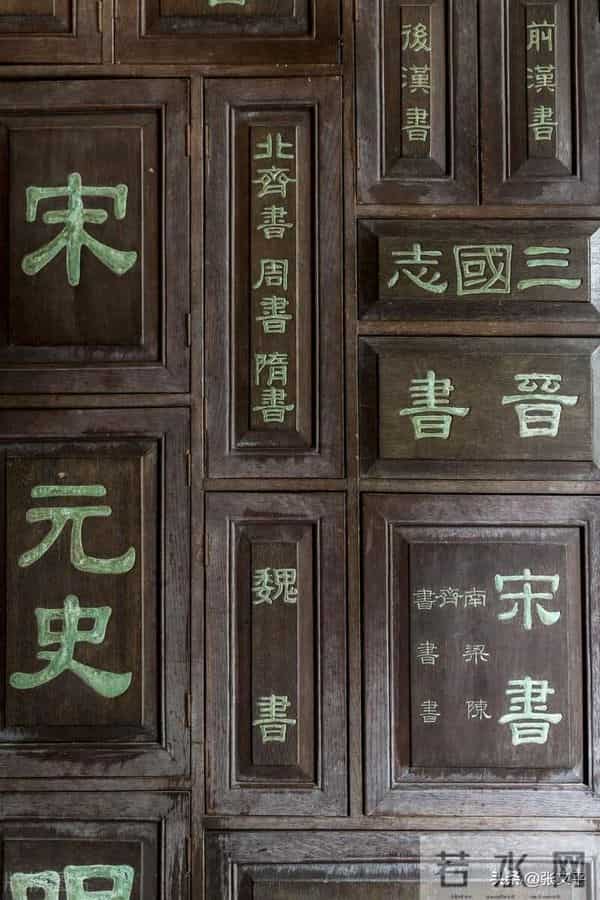 前漢書
後漢書
三國志
晉書
宋書
南齊書
梁書
陳書
北齊書 周書 隋書
魏書
宋
元史
若水网
头条 @张文平